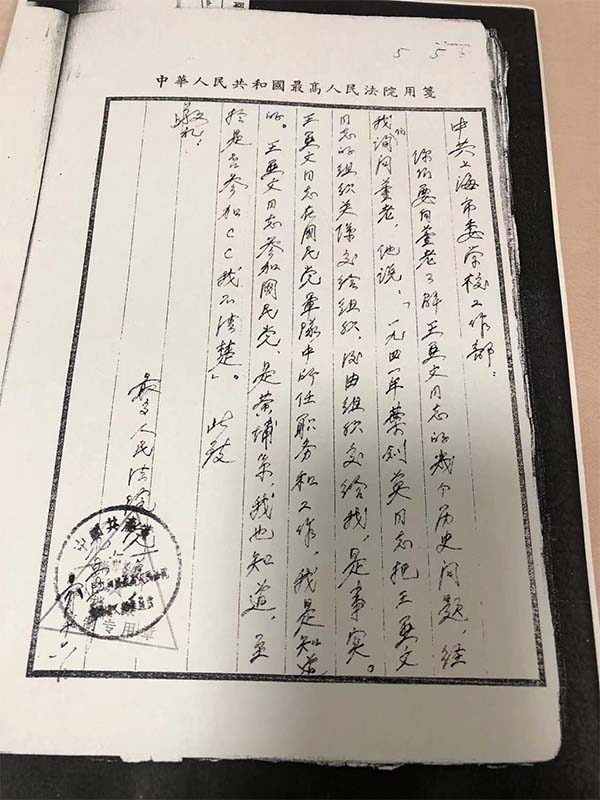 5 5
中華人民共和國最高人民法院用箋
中共上海市委学校工作部：
你们要向董老了解王亚文同志的几个历史问题，经
我们询问董老，他说：“一九四一年叶剑英同志把王亚文
同志的组织关系交给组织，后由组织交给我，是事实。
王亚文同志在國民党軍隊中所任职务和工作，我是知道
的。王亚文同志参加國民党，是黄埔系，我也知道，至
於是否参加CC我不清楚”。此致
敬礼！
最高人民法院
專用章